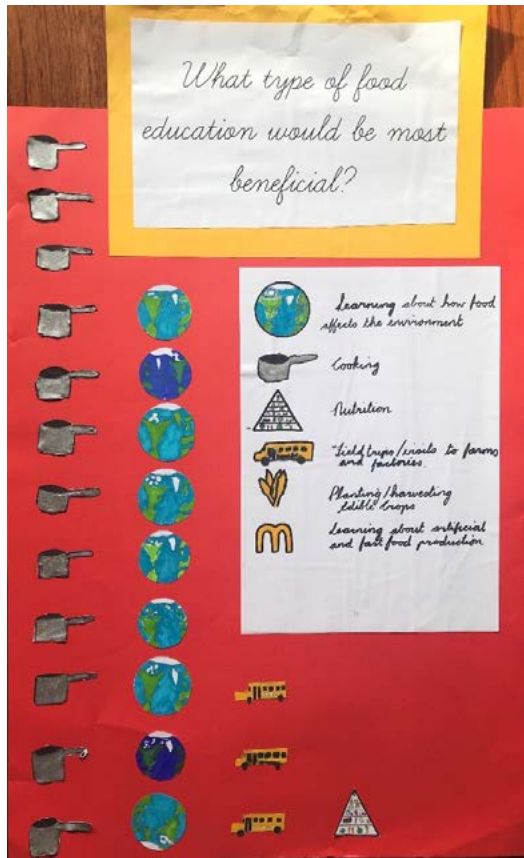 What type of food
education would be most
beneficial?
Learning about how food
affects the environment
Cooking
Nutrition
Field trips/visits to farms
and factories.
Planting/harvesting
edible crops
Learning about artificial
and fast food production